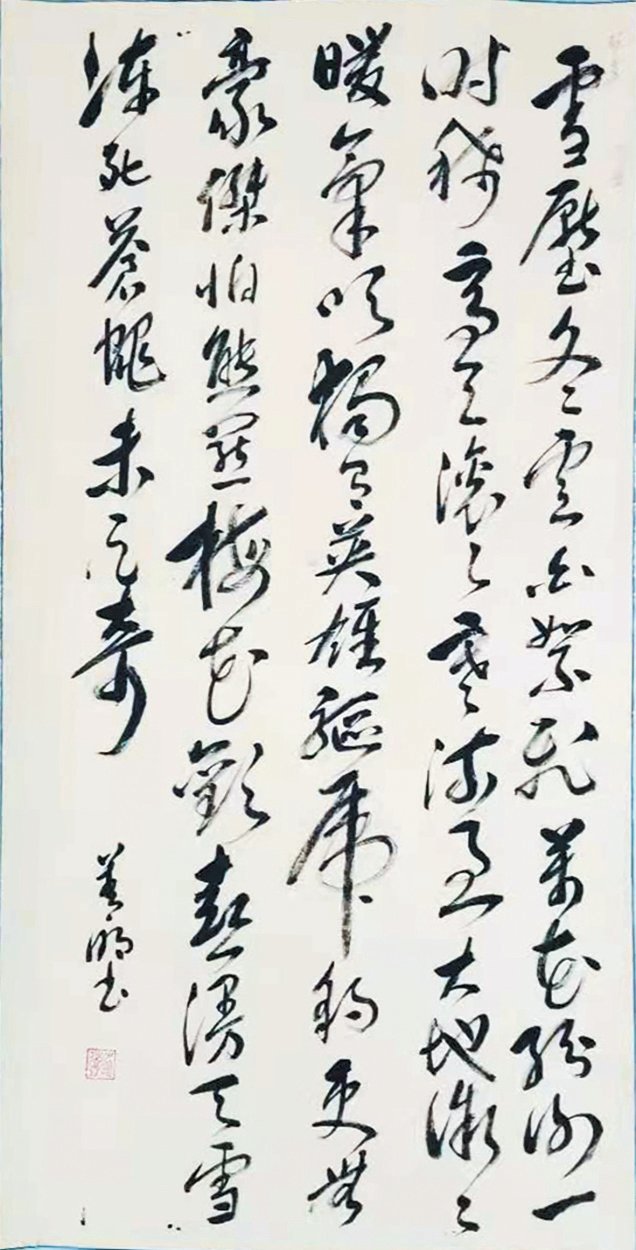 雪壓冬雲白絮飛萬花紛謝一
时稀高天滚々寒流急大地微々
暖氣吹獨有英雄驅虎豹更無
豪傑怕熊羆梅花歡喜漫天雪
凍死蒼蠅未足奇
明书